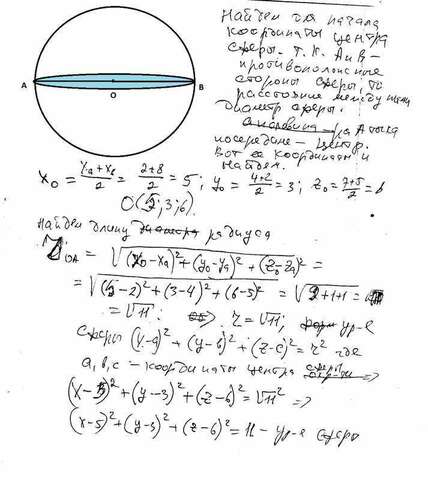 Найдем для начала
координаты центра
сферы. Т. к. A и B –
противоположные
стороны сферы, то
расстояние между ними
диаметр сферы.
A O B
а половина – 
посередине – центр.
Вот ее координаты и
найдем.
x₀ = (xₐ + xᵦ)/2 = (2+8)/2 = 5; y₀ = (4+2)/2 = 3; z₀ = (7+5)/2 = 6
O(5; 3; 6).
Найдем длину диаметра радиуса
OA = √((x₀ – xₐ)² + (y₀ – yₐ)² + (z₀ – zₐ)²) =
= √((5–2)² + (3–4)² + (6–5)²) = √(9+1+1) =
= √11. r = √11; ур-е
сферы (x–a)² + (y–b)² + (z–c)² = r² где
a, b, c – координаты центра сферы =>
(x–5)² + (y–3)² + (z–6)² = √11² =>
(x–5)² + (y–3)² + (z–6)² = 11 – ур-е сферы